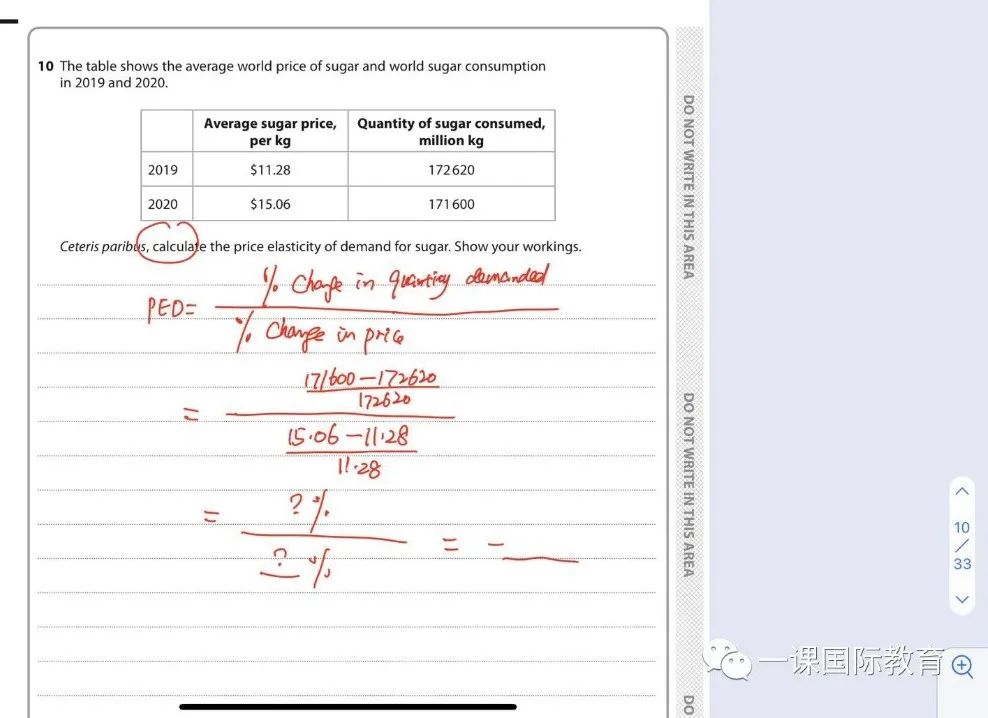 10 The table shows the average world price of sugar and world sugar consumption
in 2019 and 2020.
Average sugar price,
per kg
Quantity of sugar consumed,
million kg
2019 $11.28 172 620
2020 $15.06 171 600
Ceteris paribus, calculate the price elasticity of demand for sugar. Show your workings.
PED=
% Change in quantity demanded
% Change in price
=
171600 - 172620
172620
15.06 - 11.28
11.28
=
? %
? %
= -
DO NOT WRITE IN THIS AREA
DO NOT WRITE IN THIS AREA
DO
10
/
33
一课国际教育